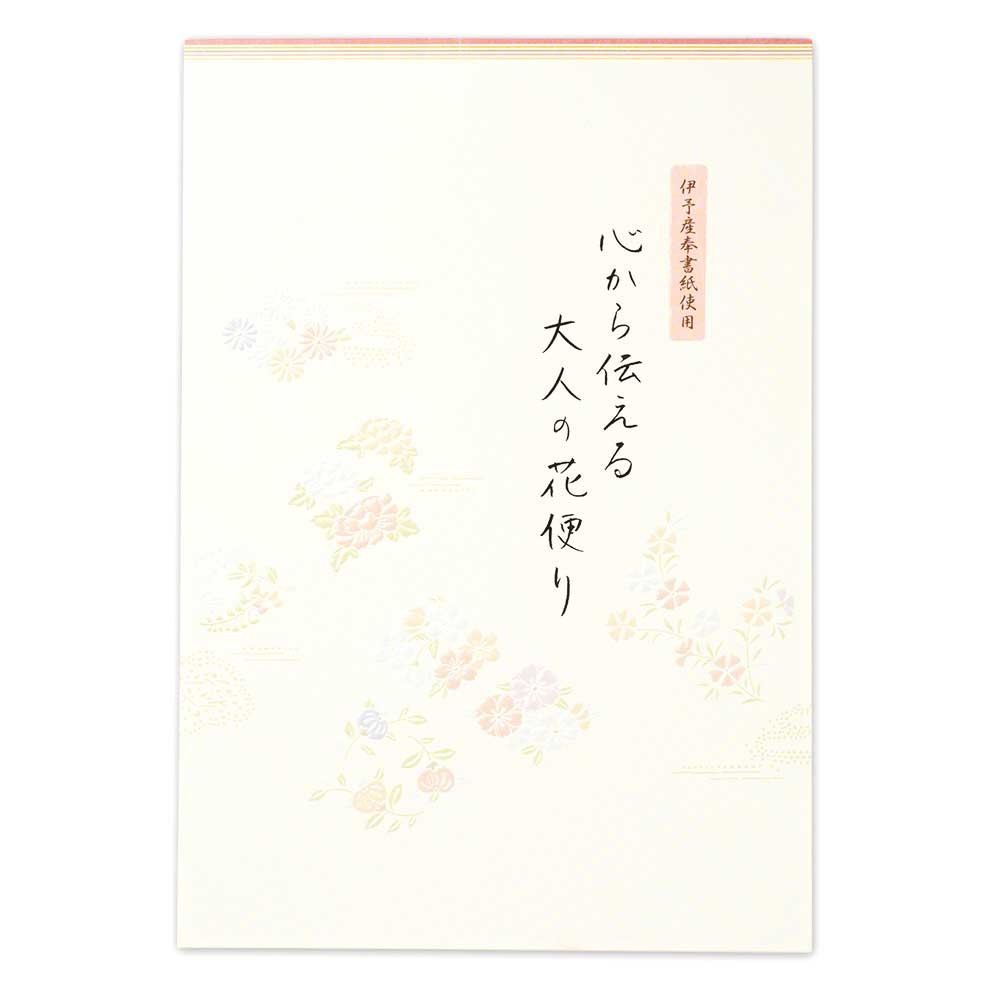 伊予産奉書紙使用
心から伝える
大人の花便り